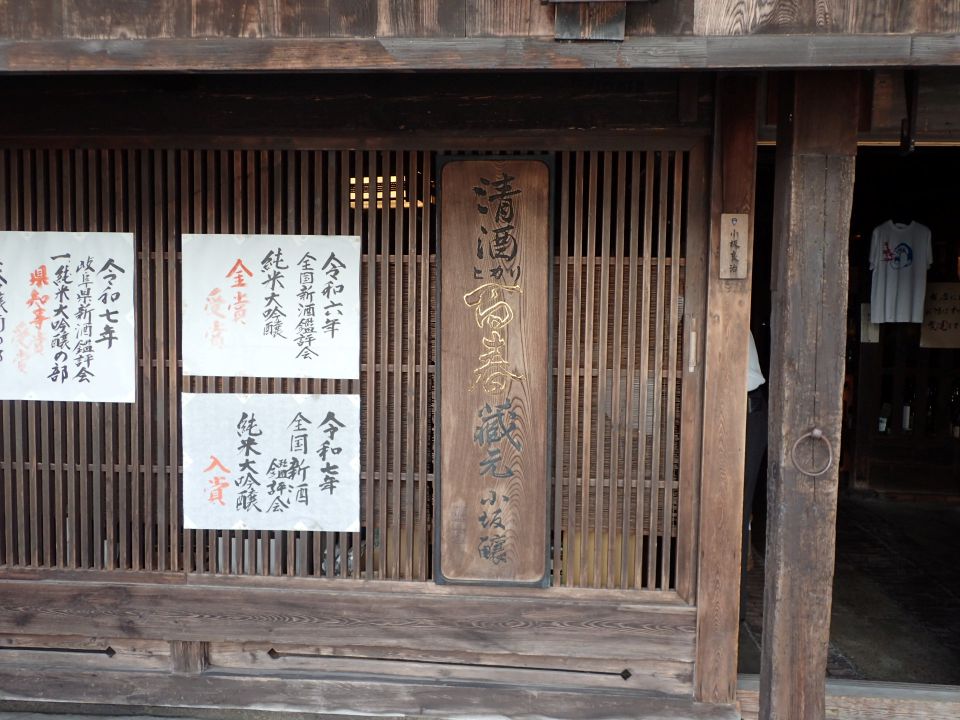 令和七年
岐阜県新酒鑑評会
一純米大吟醸の部
県知事賞
受賞
令和六年
全国新酒鑑評会
純米大吟醸
金賞
受賞
令和七年
全国新酒
鑑評会
純米大吟醸
入賞
清酒
ヒカリ
百春
蔵元
小坂醸